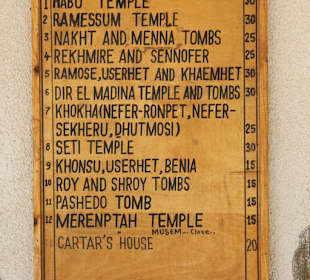 1 HABU TEMPLE 30
2 RAMESSUM TEMPLE 30
3 NAKHT AND MENNA TOMBS 25
4 REKHMIRE AND SENNOFER 25
5 RAMOSE, USERHET AND KHAEMHET 30
6 DIR EL MADINA TEMPLE AND TOMBS 30
7 KHOKHA(NEFER-RONPET, NEFER-
SEKHERU, DHUTMOSI) 25
8 SETI TEMPLE 30
9 KHONSU, USERHET, BENIA 15
10 ROY AND SHROY TOMBS 15
11 PASHEDO TOMB 15
12 MERENPTAH TEMPLE 15
MUSEM... Close..
CARTAR'S HOUSE 20